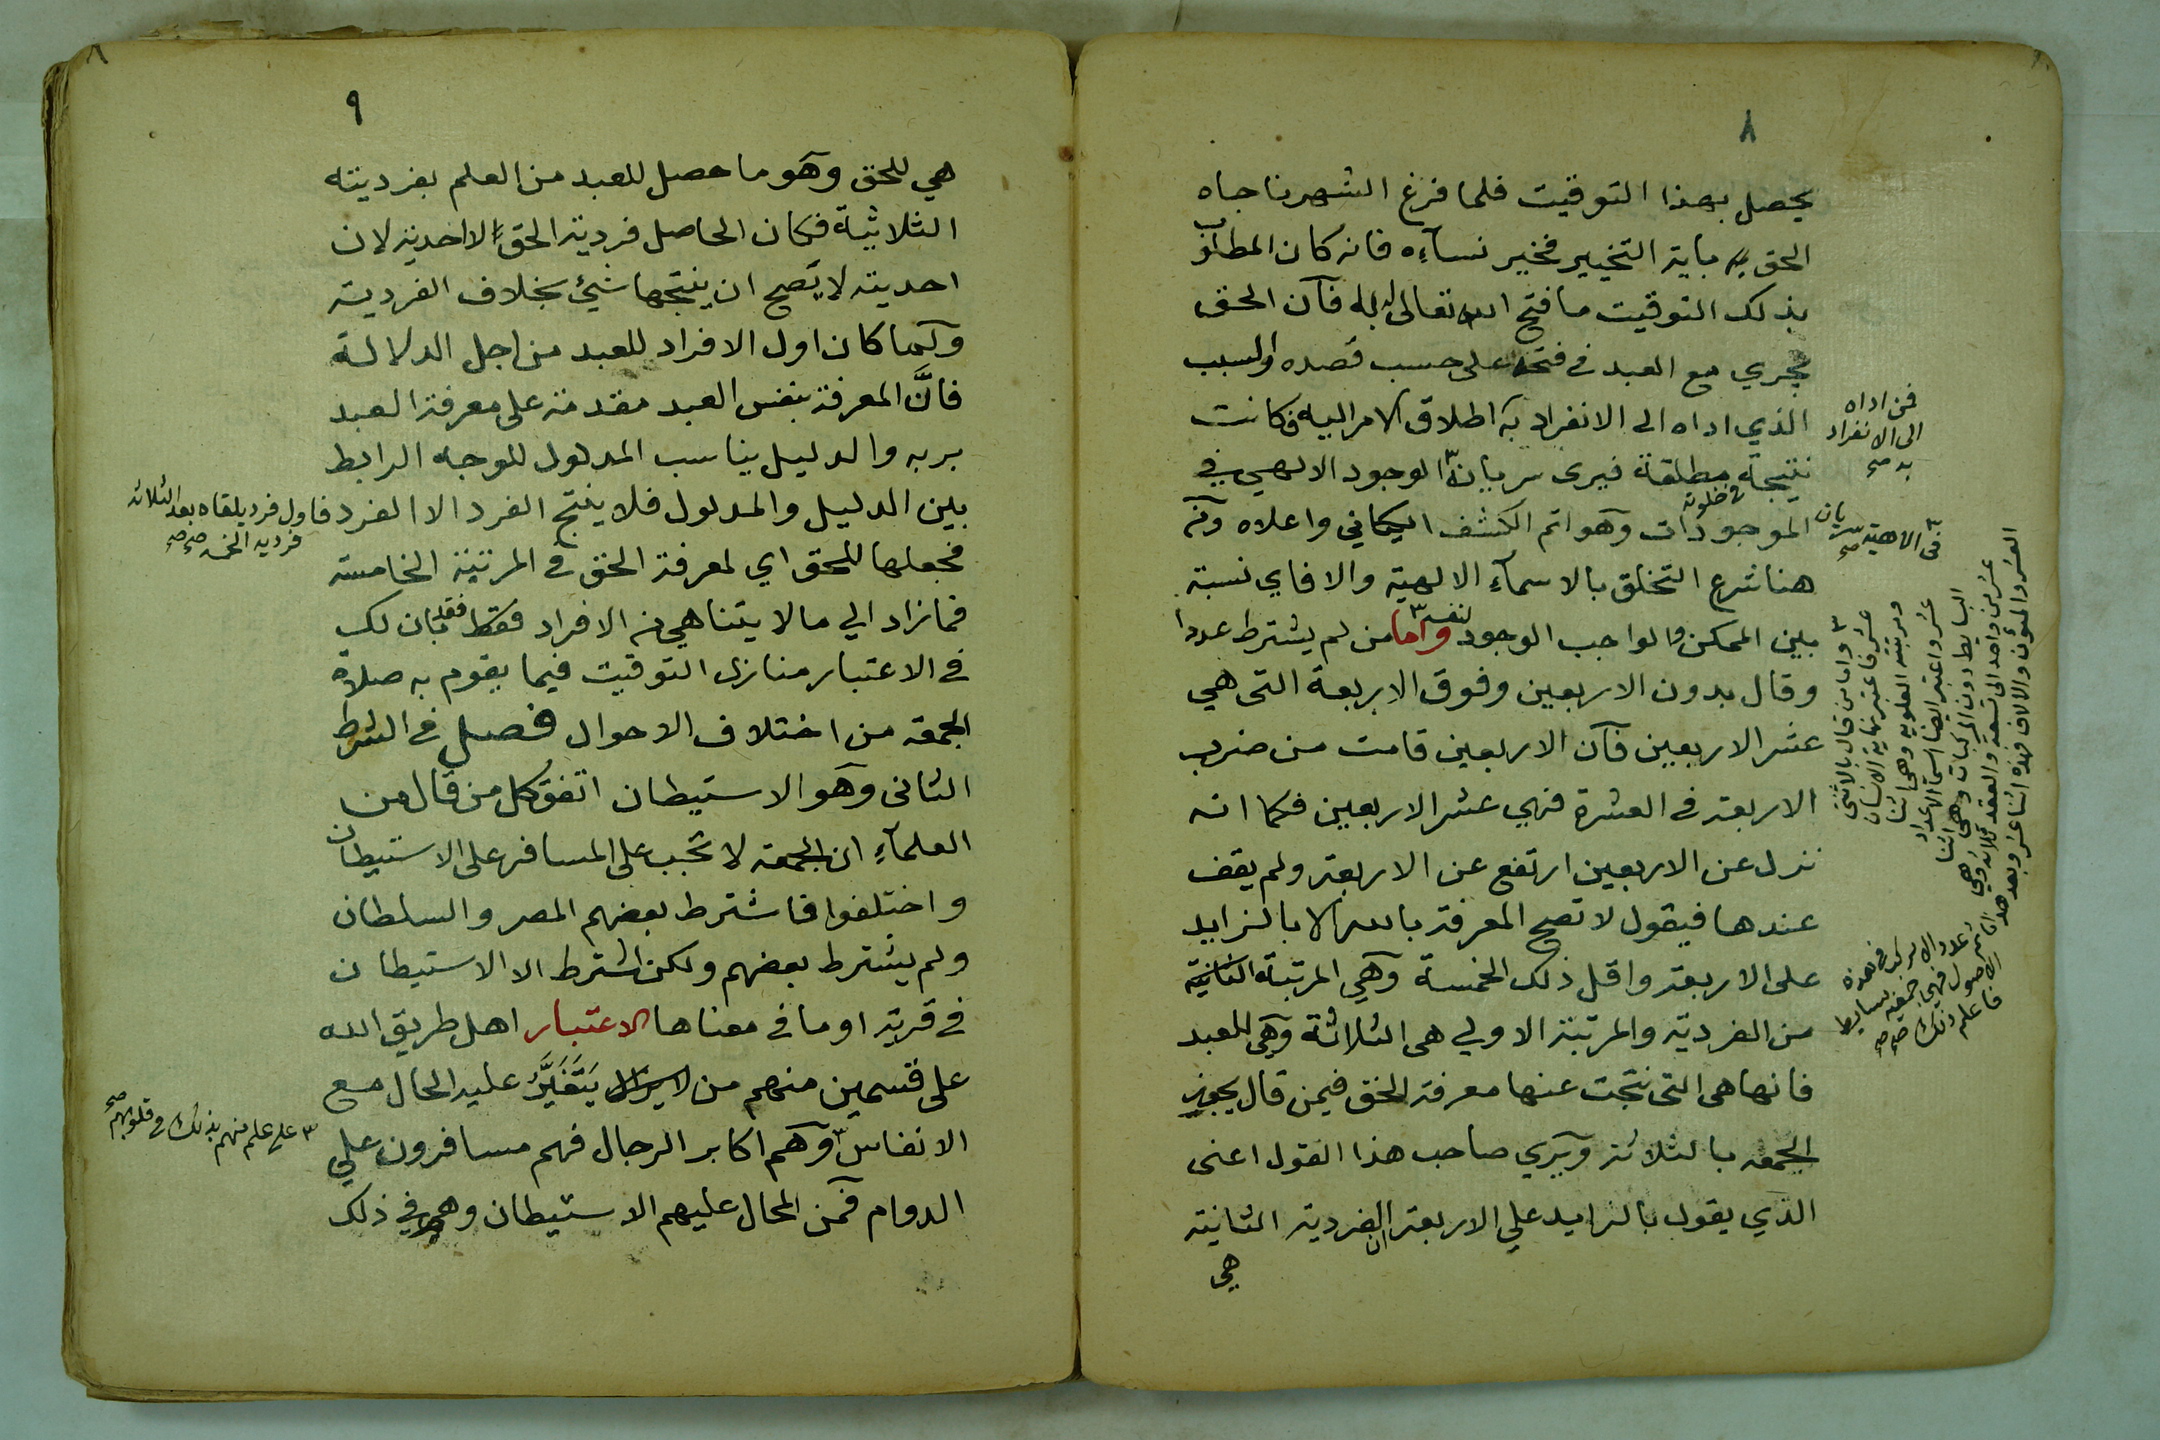 ٨
يحصل بهذا التوقيت فلما فرغ الشهر ناجاه
الحق باية التخيير فخير نسآءه فانه كان المطلوب
بذلك التوقيت ما فتح الله تعالى له به فان الحق
يجري مع العبد في فتحه على حسب قصده والسبب
الذي اداه الى الانفراد به اطلاق الامر اليه فكانت
نتيجة مطلقة فيرى سريان الوجود الالهي في
الموجودات وهو اتم الكشف الكياني واعلاه ومن
هنا شرع التخلق بالاسمآء الالهية والا فاي نسبة
بين الممكن والواجب الوجود لنفسه واما من لم يشترط عددا
وقال بدون الاربعين وفوق الاربعة التى هي
عشر الاربعين فان الاربعين قامت من ضرب
الاربعة في العشرة فهي عشر الاربعين فكما انه
نزل عن الاربعين ارتفع عن الاربعة ولم يقف
عندها فيقول لا تصح المعرفة بالله الا بالزايد
على الاربعة واقل ذلك الخمسة وهي المرتبة الثانية
من الفردية والمرتبة الاولي هي الثلاثة وهي للعبد
فانها هى التى نتجت عنها معرفة الحق فيمن قال يجوز
الجمعه بالثلاثة ويري صاحب هذا القول اعنى
الذي يقول بالزايد علي الاربعة ان الفردية الثانية
هي
فمن اداه
الى الانفراد
به صح
في خلوته
سريان
في الالهية صح
واما من قال بالاثنى
عشر فاعتبر نهاية الانسان
ومرتبته العلوية وهي اثنا
عشر واعتبر ايضا اسمآ الاعداد
البسايط دون المركبات وهي اثنا
عشر من واحد الى تسعة والعقد ثلاثة وهي
العشر والمئون والالاف فهذه اثنا عشر وبعد هذا
عدد الا مركب من هذه
الاصول فهي جميعه بسايط
فاعلم ذلك صح
٩
هي للحق وهو ما حصل للعبد من العلم بفرديته
الثلاثية فكان الحاصل فردية الحق لا احديته لان
احديته لا يصح ان ينتجها شئ بخلاف الفردية
ولما كان اول الافراد للعبد من اجل الدلالة
فانَّ المعرفة بنفس العبد مقدمة على معرفة العبد
بربه والدليل يناسب المدلول للوجه الرابط
بين الدليل والمدلول فلا ينتج الفرد الا الفرد فاول فرد يلقاه بعد الثلاثه
فردية الخمسه صح
فجعلها للحق اي لمعرفة الحق في المرتبة الخامسة
فما زاد الي ما لا يتناهي من الافراد فقط فقد بان لك
في الاعتبار منازل التوقيت فيما يقوم به صلاة
الجمعه من اختلاف الاحوال فصل في الشرط
الثانى وهو الاستيطان اتفق كل من قال من
العلمآء ان الجمعه لا تجب على المسافر على الاستيطان
واختلفوا فاشترط بعضهم المصر والسلطان
ولم يشترط بعضهم ولكن اشترط الا الاستيطان
في قرية او ما في معناها الاعتبار اهل طريق الله
على قسمين منهم من لا يزال يَتَغَيَّرُ عليه الحال مع
الانفاس وهم اكابر الرجال فهم مسافرون علي
الدوام فمن المحال عليهم الاستيطان وهم في ذلك
٣ على علم منهم بذلك في قلوبهم صح